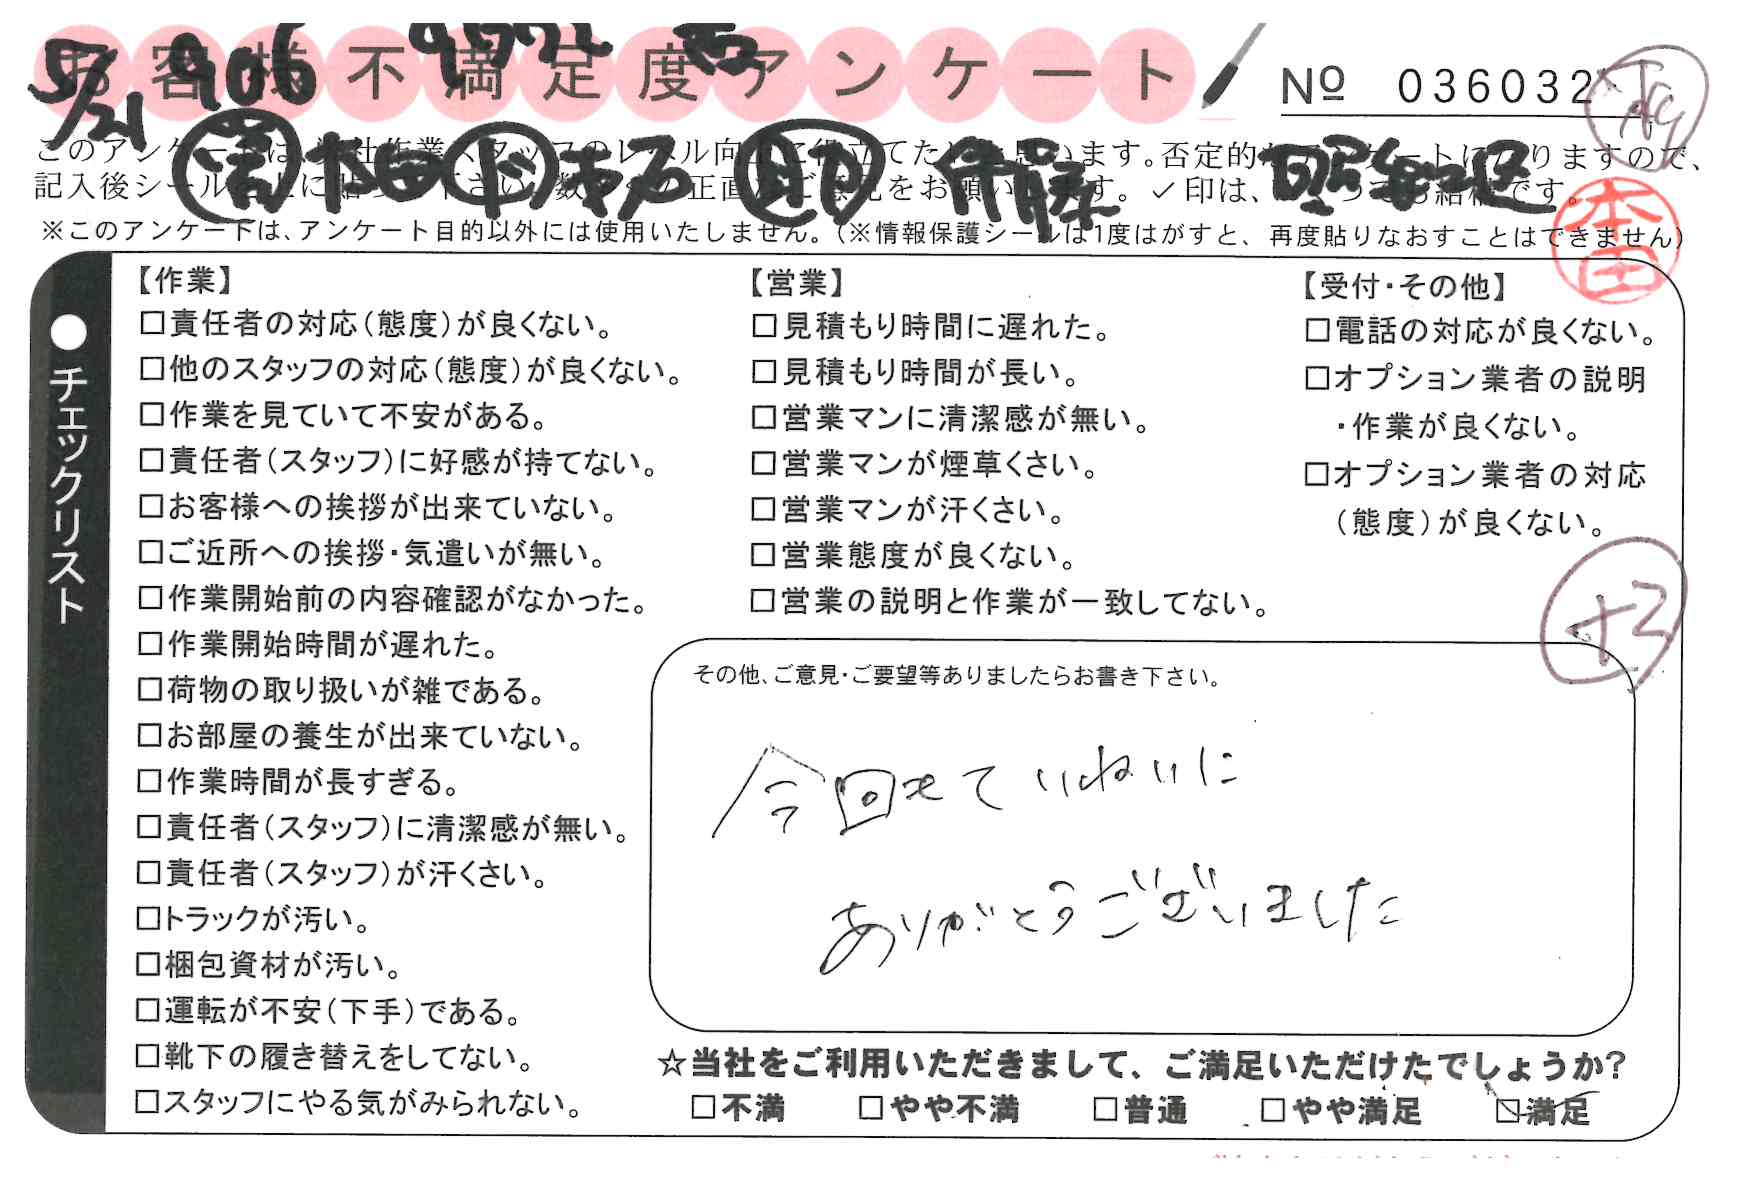 お客様不満足度アンケート
№ 036032
5/21 906
このアンケートは、当社作業スタッフのレベル向上に役立てたいと思います。否定的なアンケートになりますので、
記入後シールを上に貼って下さい。数多くの正直なご意見をお願いします。✓印は、いくつでも結構です。
※このアンケートは、アンケート目的以外には使用いたしません。(※情報保護シールは1度はがすと、再度貼りなおすことはできません)
本田
●チェックリスト
【作業】
□責任者の対応(態度)が良くない。
□他のスタッフの対応(態度)が良くない。
□作業を見ていて不安がある。
□責任者(スタッフ)に好感が持てない。
□お客様への挨拶が出来ていない。
□ご近所への挨拶・気遣いが無い。
□作業開始前の内容確認がなかった。
□作業開始時間が遅れた。
□荷物の取り扱いが雑である。
□お部屋の養生が出来ていない。
□作業時間が長すぎる。
□責任者(スタッフ)に清潔感が無い。
□責任者(スタッフ)が汗くさい。
□トラックが汚い。
□梱包資材が汚い。
□運転が不安(下手)である。
□靴下の履き替えをしてない。
□スタッフにやる気がみられない。
【営業】
□見積もり時間に遅れた。
□見積もり時間が長い。
□営業マンに清潔感が無い。
□営業マンが煙草くさい。
□営業マンが汗くさい。
□営業態度が良くない。
□営業の説明と作業が一致してない。
【受付・その他】
□電話の対応が良くない。
□オプション業者の説明
・作業が良くない。
□オプション業者の対応
(態度)が良くない。
+3
その他、ご意見・ご要望等ありましたらお書き下さい。
今回もていねいに
ありがとうございました
☆当社をご利用いただきまして、ご満足いただけたでしょうか?
□不満 □やや不満 □普通 □やや満足 ☑満足